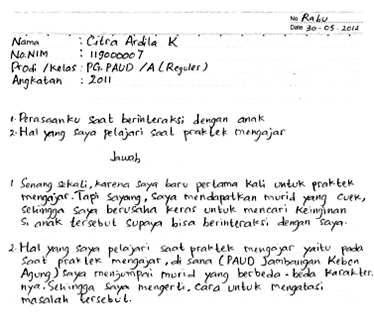 No Rabu
Date 30-05-2012
Nama : Citra Ardila K
No.NIM : 119000007
Prodi /Kelas : PG. PAUD /A (Reguler)
Angkatan : 2011
1. Perasaanku saat berinteraksi dengan anak
2. Hal yang saya pelajari saat praktek mengajar
Jawab
1 Senang sekali, karena saya baru pertama kali untuk praktek
mengajar. Tapi sayang, saya mendapatkan murid yang cuek,
sehingga saya berusaha keras untuk mencari keinginan
si anak tersebut supaya bisa berinteraksi dengan saya.
2. Hal yang saya pelajari saat praktek mengajar yaitu pada
saat praktek mengajar, di sana (PAUD Jambangan Kebon
Agung) saya menjumpai murid yang berbeda-beda karakter.
nya. Sehingga saya mengerti, cara untuk mengatasi
masalah tersebut.